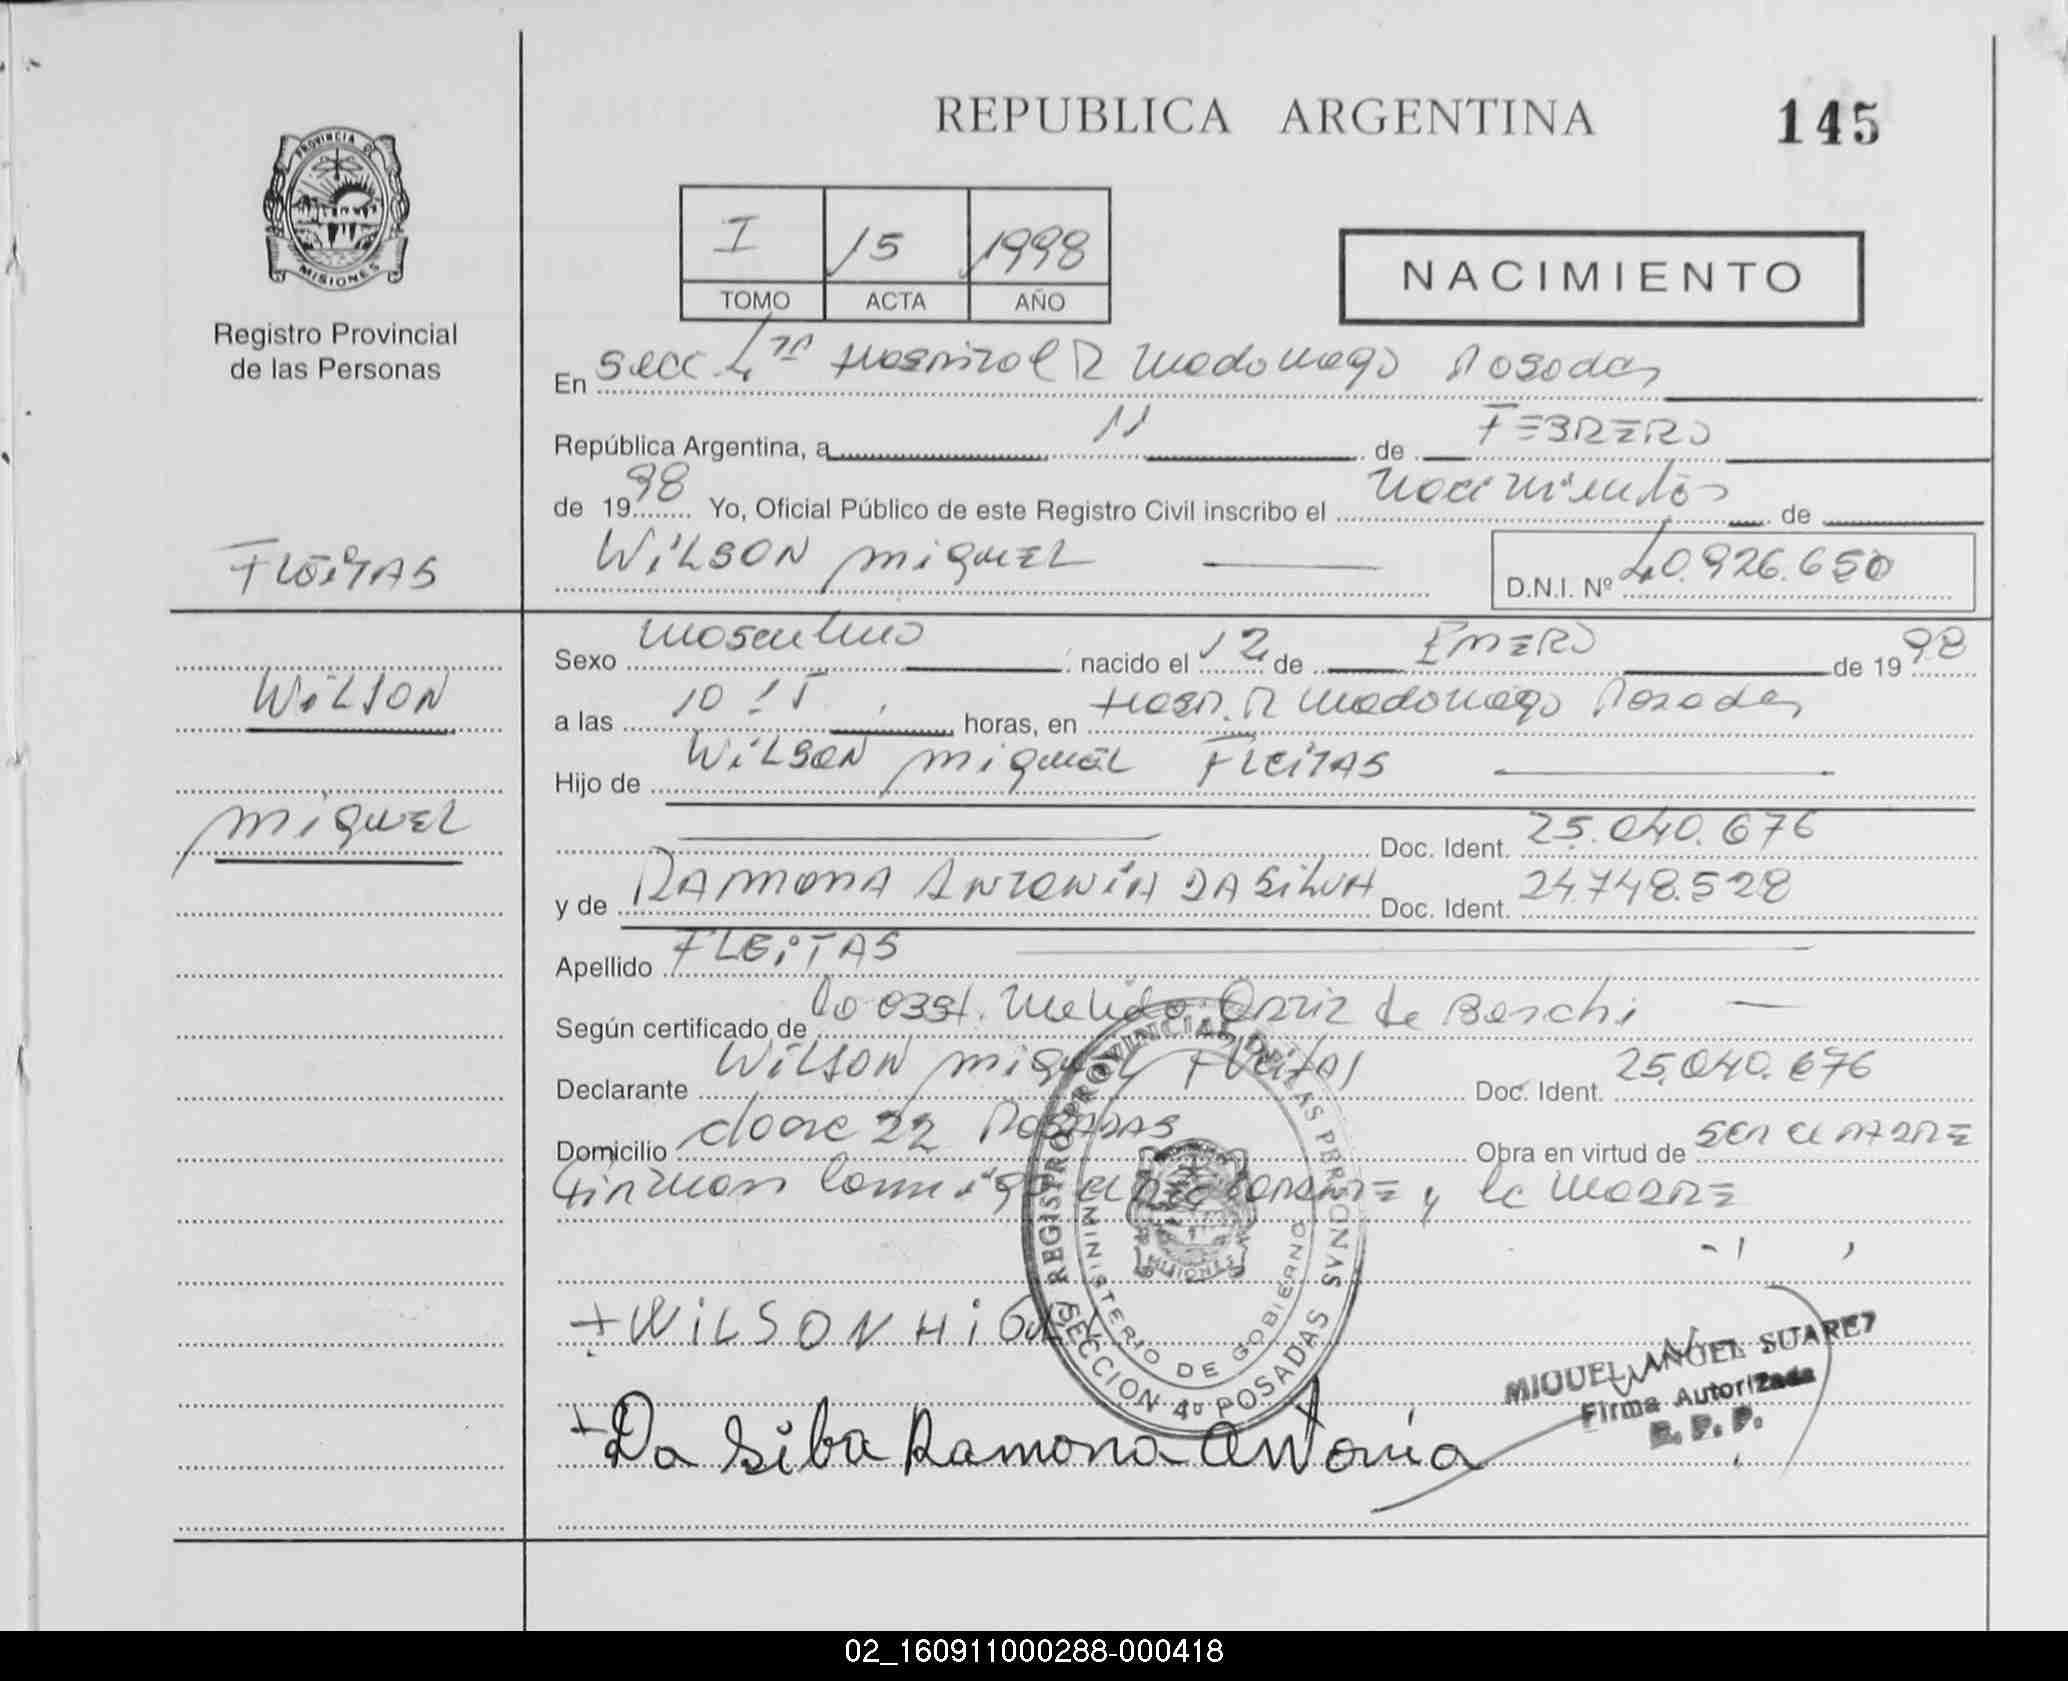 REPUBLICA ARGENTINA
145
PROVINCIA DE
MISIONES
Registro Provincial
de las Personas
I 15 1998
TOMO ACTA AÑO
NACIMIENTO
En Secc 4ta Hospital R Madariaga Posadas
República Argentina, a 11 de FEBRERO
de 1998 Yo, Oficial Público de este Registro Civil inscribo el Nacimiento de
WILSON MIGUEL
D.N.I. Nº 40.926.650
FLEITAS
WILSON
MIGUEL
Sexo Masculino nacido el 12 de ENERO de 1998
a las 10:15 horas, en Hosp. R Madariaga Posadas
Hijo de WILSON MIGUEL FLEITAS
Doc. Ident. 25.040.676
y de RAMONA ANTONIA DA SILVA Doc. Ident. 24.748.528
Apellido FLEITAS
Según certificado de la obst. Ortiz de
Declarante WILSON MIGUEL FLEITAS Doc. Ident. 25.040.676
Domicilio 22 POSADAS Obra en virtud de ser el PADRE
Firman conmigo el declarante y la MADRE
+WILSON MIGUEL
+Da Silva Ramona Antonia
REGISTRO PROVINCIAL DE LAS PERSONAS
MINISTERIO DE GOBIERNO
MISIONES
SECCION 4º POSADAS
MIGUEL ANGEL SUAREZ
Firma Autorizada
R. P. P.
02_160911000288-000418